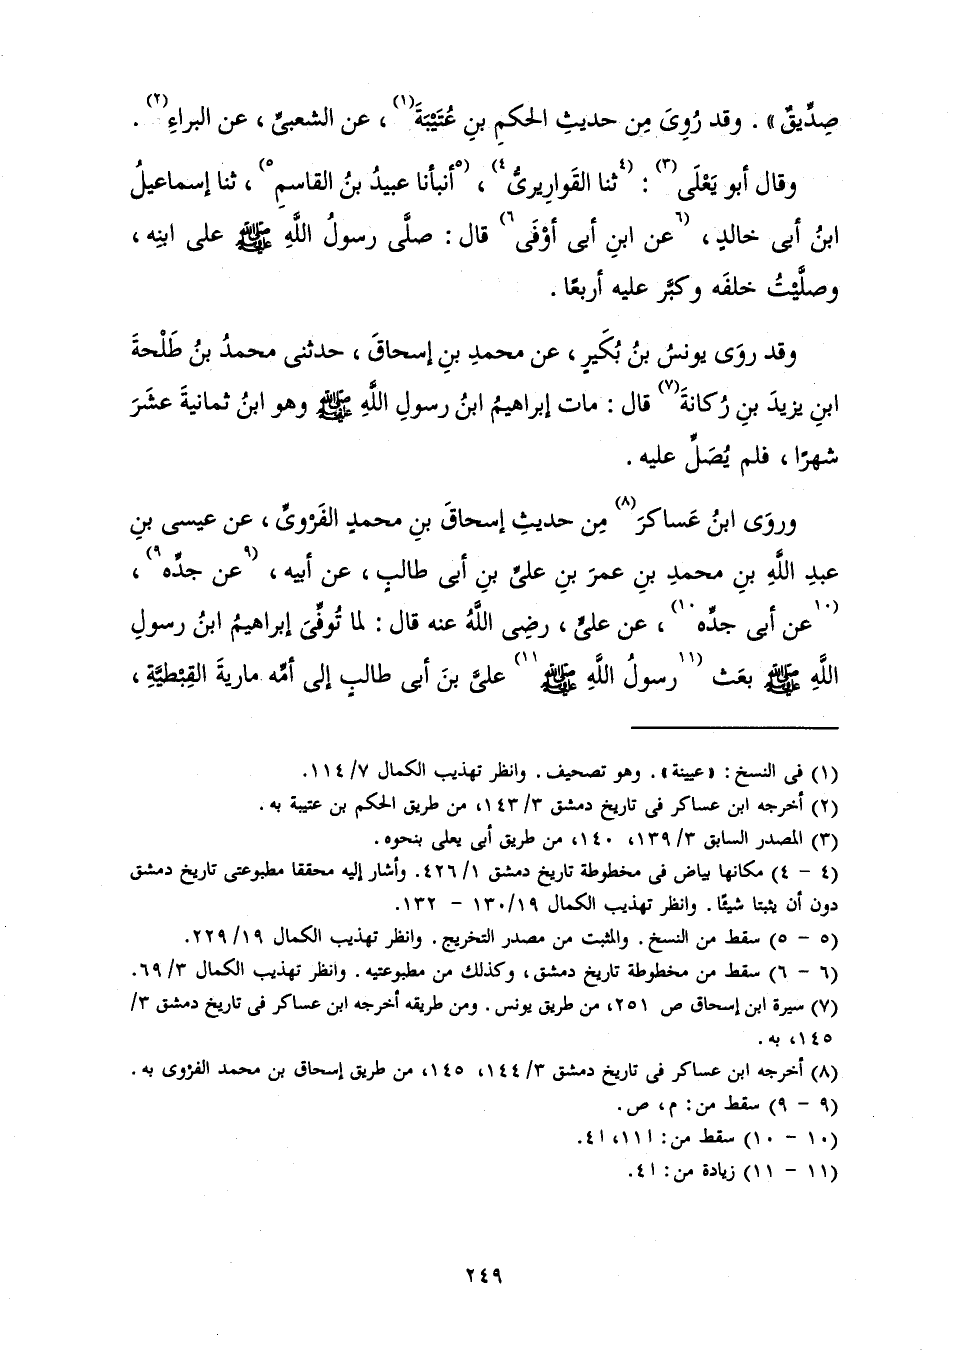 صِدِّيقٌ» . وقد رُوِىَ مِن حديثِ الحكمِ بنِ عُتَيْبَةَ(١) ، عن الشعبىِّ ، عن البراءِ(٢) .
وقال أبو يَعْلَى(٣) : (٤ثنا القَوارِيرىُّ٤) ، (٥أنبأنا عبيدُ بنُ القاسمِ٥) ، ثنا إسماعيلُ
ابنُ أبى خالدٍ ، (٦عن ابنِ أبى أوْفَى٦) قال : صلَّى رسولُ اللَّهِ ﷺ على ابنِه ،
وصلَّيْتُ خلفَه وكبَّر عليه أربعًا .
وقد روَى يونسُ بنُ بُكَيرٍ ، عن محمدِ بنِ إسحاقَ ، حدثنى محمدُ بنُ طَلْحةَ
ابنِ يزيدَ بنِ رُكانةَ(٧) قال : مات إبراهيمُ ابنُ رسولِ اللَّهِ ﷺ وهو ابنُ ثمانيةَ عشَرَ
شهرًا ، فلم يُصَلِّ عليه .
وروَى ابنُ عَساكرَ(٨) مِن حديثِ إسحاقَ بنِ محمدٍ الفَرْوىِّ ، عن عيسى بنِ
عبدِ اللَّهِ بنِ محمدِ بنِ عمرَ بنِ علىِّ بنِ أبى طالبٍ ، عن أبيه ، (٩عن جدِّه٩) ،
(١٠عن أبى جدِّه١٠) ، عن علىٍّ ، رضِى اللَّهُ عنه قال : لما تُوفِّىَ إبراهيمُ ابنُ رسولِ
اللَّهِ ﷺ بعَث (١١رسولُ اللَّهِ ﷺ١١) علىَّ بنَ أبى طالبٍ إلى أمِّه ماريةَ القِبْطيَّةِ ،
(١) فى النسخ : «عيينة» . وهو تصحيف . وانظر تهذيب الكمال ٧/ ١١٤.
(٢) أخرجه ابن عساكر فى تاريخ دمشق ٣/ ١٤٣، من طريق الحكم بن عتيبة به .
(٣) المصدر السابق ٣/ ١٣٩، ١٤٠، من طريق أبى يعلى بنحوه .
(٤ - ٤) مكانها بياض فى مخطوطة تاريخ دمشق ١/ ٤٢٦. وأشار إليه محققا مطبوعتى تاريخ دمشق
دون أن يثبتا شيئًا . وانظر تهذيب الكمال ١٩/ ١٣٠ - ١٣٢.
(٥ - ٥) سقط من النسخ . والمثبت من مصدر التخريج . وانظر تهذيب الكمال ١٩/ ٢٢٩.
(٦ - ٦) سقط من مخطوطة تاريخ دمشق ، وكذلك من مطبوعتيه . وانظر تهذيب الكمال ٣/ ٦٩.
(٧) سيرة ابن إسحاق ص ٢٥١، من طريق يونس . ومن طريقه أخرجه ابن عساكر فى تاريخ دمشق ٣/
١٤٥، به .
(٨) أخرجه ابن عساكر فى تاريخ دمشق ٣/ ١٤٤، ١٤٥، من طريق إسحاق بن محمد الفرْوى به .
(٩ - ٩) سقط من : م ، ص .
(١٠ - ١٠) سقط من : ا ١١، ا ٤.
(١١ - ١١) زيادة من : ا ٤.
٢٤٩